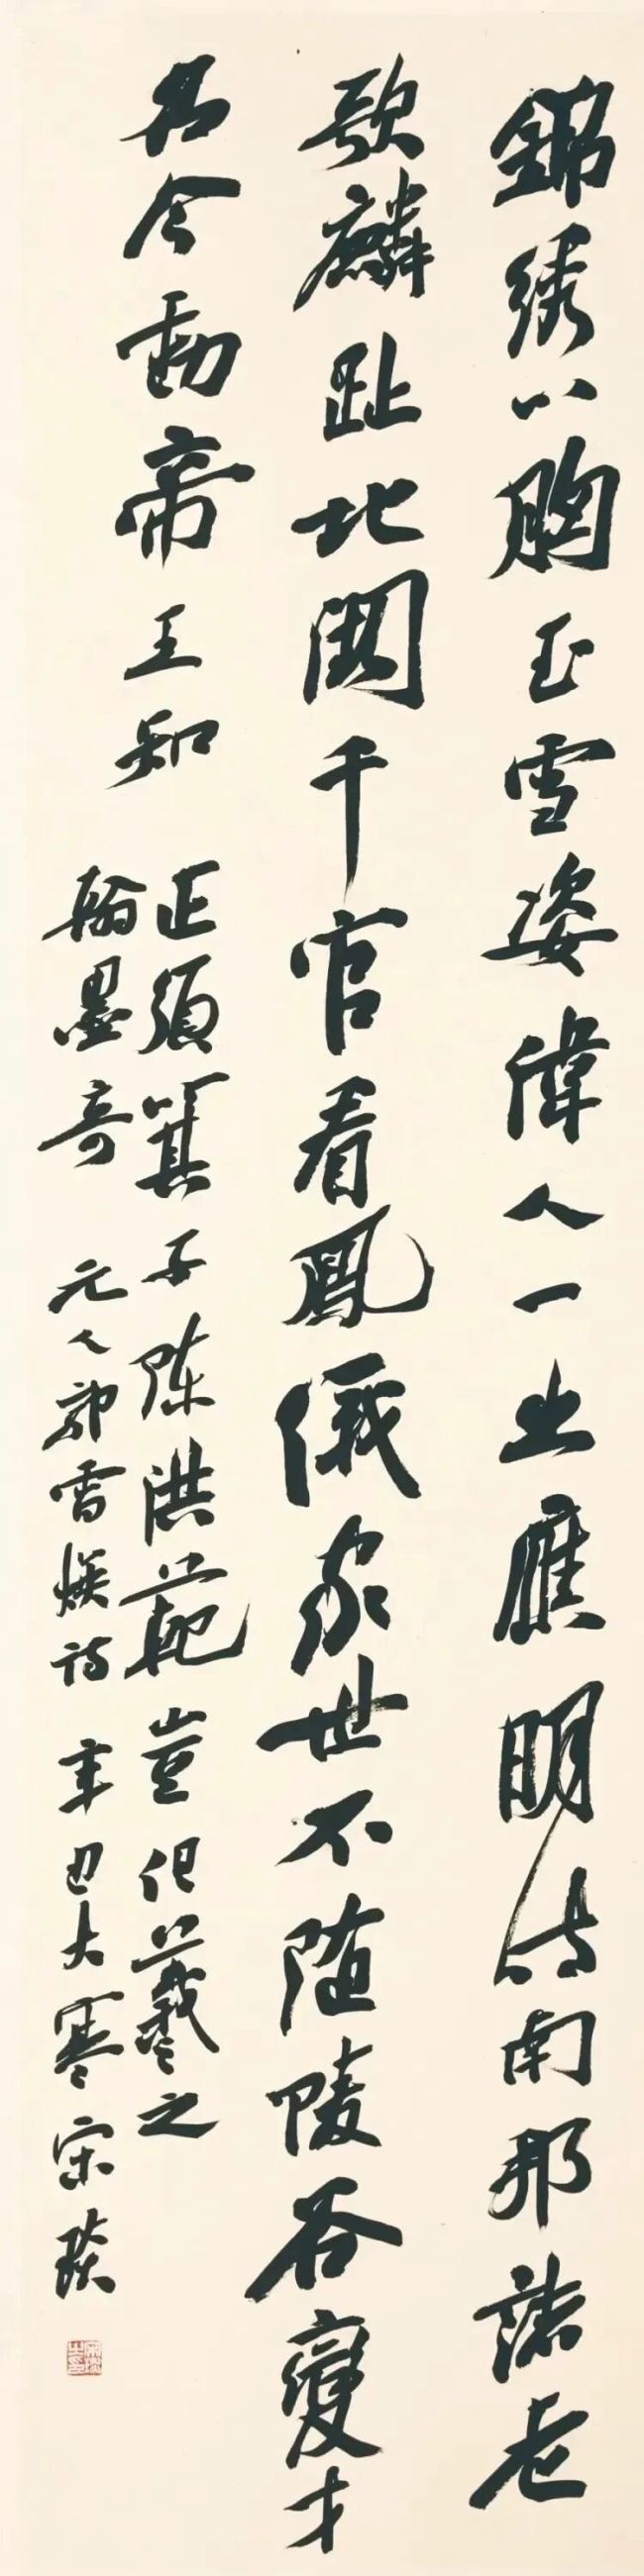 錦綉心胸玉雪姿偉人一出應明時南邦諸老
歌麟趾北闕千官看鳳儀家世不隨陵谷變才
名今動帝王知
正須箕子陳洪範豈但羲之
翰墨奇
元人郭雪 詩
辛丑大寒宋琰